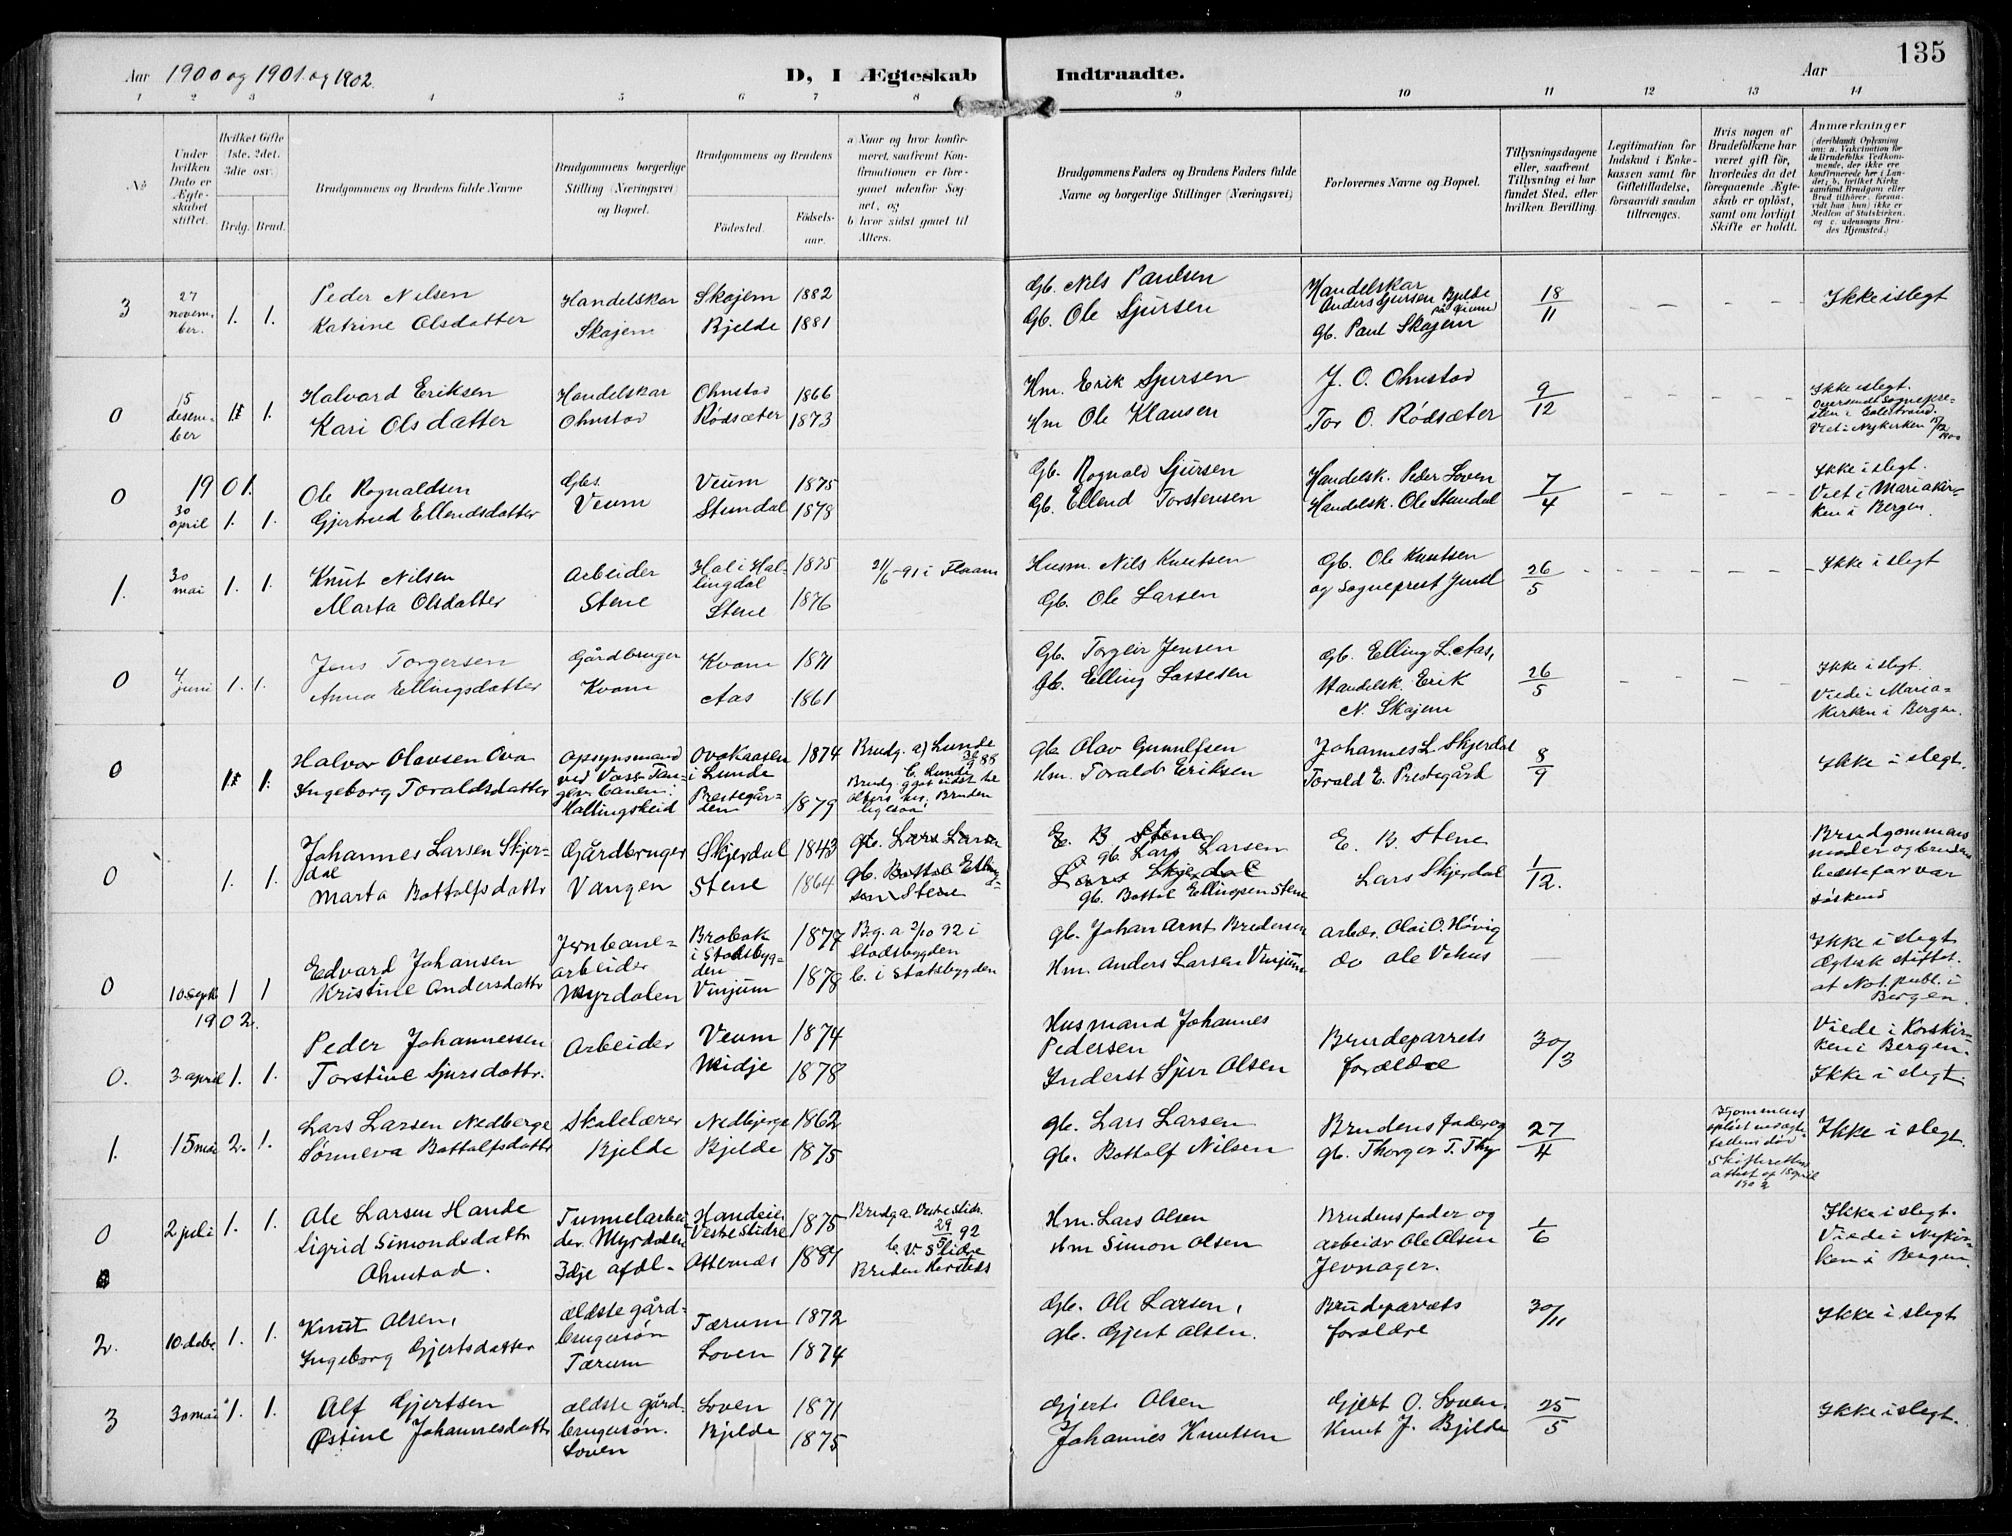 135
Aar 1900 og 1901 og 1902.
D, I Ægteskab Indtraadte.
Aar
1 2 3 4 5 6 7 8 9 10 11 12 13 14
No
Under hvilken Dato er Ægteskabet stiftet.
Hvilket Gifte (1ste, 2det, 3die osv.)
Brdg. Brud.
Brudgommens og Brudens fulde Navne
Brudgommens borgerlige Stilling (Næringsvei) og Bopæl.
Brudgommens og Brudens
Fødested.
Fødselsaar.
a Naar og hvor konfirmeret, saafremt Konfirmationen er foregaaet udenfor Sognet, og
b hvor sidst gaaet til Alters.
Brudgommens Faders og Brudens Faders fulde Navne og borgerlige Stillinger (Næringsvei)
Forlovernes Navne og Bopæl.
Tillysningsdagene eller, saafremt Tillysning ei har fundet Sted, efter hvilken Bevilling.
Legitimation for Indskud i Enkekassen samt for Giftetilladelse, forsaavidt saadan tiltrænges.
Hvis nogen af Brudefolkene har været gift før, hvorledes da det foregaaende Ægteskab er opløst, samt om lovligt Skifte er holdt.
Anmærkninger
(deriblandt Oplysning om: a. Vakcination for de Brudefolks Vedkommende, der ikke ere konfirmerede her i Landet; b. hvilket Kirkesamfund Brudgom eller Brud tilhører, forsaavidt han (hun) ikke er Medlem af Statskirken, og c. udensogns Brudes Hjemsted.)
3 27 november. 1. 1. Peder Nilsen Handelskar Skajem 1882 Gb. Nils Paulsen Handelskar Anders Sjursen Bjelde 18/11 – – – Ikke i slegt
Katrine Olsdatter Skajem Bjelde 1881 Gb. Ole Sjursen Gb. Paul Skajem
0 15 desember 1. Halvard Eriksen Handelskar Ohnstad 1866 Hm. Erik Sjursen J. O. Ohnstad 9/12 – – – – Ikke i slegt.
Kari Olsdatter Ohnstad Rødsæter 1873 Hm Ole Klausen Tor O. Rødsæter Viet i Nykirken 15/12 1900
1901.
0 30 april 1. 1. Ole Rognaldsen Gbs. Veum 1875 Gb. Rognald Sjursen Handelsk. Peder Loven 7/4 – – – – Ikke i slegt.
Gjertrud Ellendsdatter Veum Stundal 1878 Gb. Ellend Torstensen Handelsk. Ole Stundal Viet i Mariakirken i Bergen.
1. 30 mai 1. 1. Knut Nilsen Arbeider Hol i Hallingdal 1875 21/6-91 i Flaam Husm. Nils Knutsen Gb. Ole Knutsen 26/5 – – – – Ikke i slegt
Marta Olsdatter Stene Stene 1876 Gb. Ole Larsen og Sogneprest Juul
0 4 juni 1. 1. Jens Torgersen Gårdbruger Kvam 1871 Gb. Torgeir Jensen Gb. Elling L. Aas, 26/5 – – – – Ikke i slegt.
Anna Ellingsdatter Kvam Aas 1861 Gb. Elling Lassesen Handelsk. Erik N. Skajem Viede i Mariakirken i Bergen.
0 1. Halvor Olavsen Ova Opsynsmand Ovakaasen i Lunde 1874 Brudg. a) Lunde Gb. Olav Gunulfsen Johannes L. Skjerdal 8/9 Ikke i slegt.
Ingeborg Toraldsdatter Hallingskeid Prestegården 1879 b. Lunde Hm. Torald Eriksen Torald E. Prestegård
0 1. 1. Johannes Larsen Skjerdal Gårdbruger Skjerdal 1843 Gb. Lars Larsen E. B Stene E. B. Stene 1/12. Brudgommens moder og brudens bestefar var søskend
Gb. Lars Larsen
Marta Bottolfsdattr Vangen Stene 1864 Gb. Bottol Ellingsen Stene Lars Skjerdal Lars Skjerdal
Gb. Bottol Ellingsen Stene
0 10 sept. 1 1 Edvard Johansen Jernbanearbeider Brobak i Stadsbygden 1877 Bg. a 2/10 92 i Stadsbygden Gb. Johan Arnt Bredesen Arbeid. Olai O. Høvig – Ikke i slegt
Kristine Andersdattr Myrdalen Vinjum 1878 b. i Statsbygden Hm. Anders Larsen Vinjum do Ole Vehus Ægtesk. stiftet at Not. publ. i Bergen.
1902.
0. 3 april 1. 1. Peder Johannessen Arbeider Veum 1874 Husmand Johannes Pedersen Brudeparrets forældre 30/3 Viede i Korskirken i Bergen.
Torstine Sjursdattr. Midje 1878 Inderst Sjur Olsen Ikke i slegt.
1. 15 mai 2. 1. Lars Larsen Nedberge Skolelærer Nedbjerge 1862 Gb. Lars Larsen Brudens fader og 27/4 Ikke i slegt.
Sønneva Bottolfsdattr Bjelde Bjelde 1875 Gb. Bottolf Nilsen Gb. Thorger T. Thy
0 2 juli 1. 1. Ole Larsen Hande Tunnelarbeider Myrdalen Handeie Vestre Slidre 1875 Brudg. a. Vestre Slidr. 29/5 92 Hm. Lars Olsen Brudens fader og 1/6 Ikke i slegt.
Sigrid Simondsdattr Ohnstad. 3dje afdl. Otternes 1881 b. V. Slidre Hm Simon Olsen arbeider Ole Olsen Jevnager. Viede i Nykirken i Bergen.
2. 10 debr 1. 1. Knut Olsen, ældste gårdbrugersøn Tærum 1872 Gb. Ole Larsen, Brudeparrets forældre 30/11 Ikke i slegt
Ingeborg Gjertsdatter Tærum Loven 1874 Gb. Gjert Olsen.
3 30 mai 1. 1. Alf Gjertsen ældste gårdbrugersøn. Loven 1871 Gjert Olsen Gjert O. Loven. 25/5 Ikke i slegt.
Østine Johannesdattr Loven Bjelde 1875 Johannes Knutsen Knut J. Bjelde